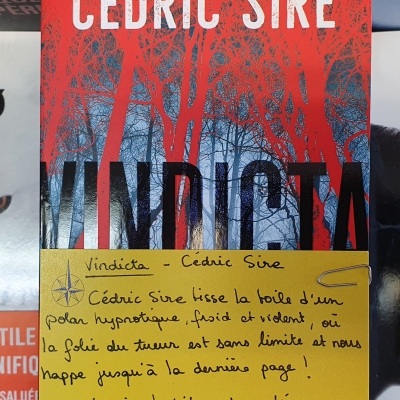 CÉDRIC SIRE
VINDICTA
Vindicta - Cédric Sire
Cédric Sire tisse la toile d'un
polar hypnotique, froid et violent, où
la folie du tueur est sans limite et nous
happe jusqu'à la dernière page !
TILE
NIFIQ
SALUÉ